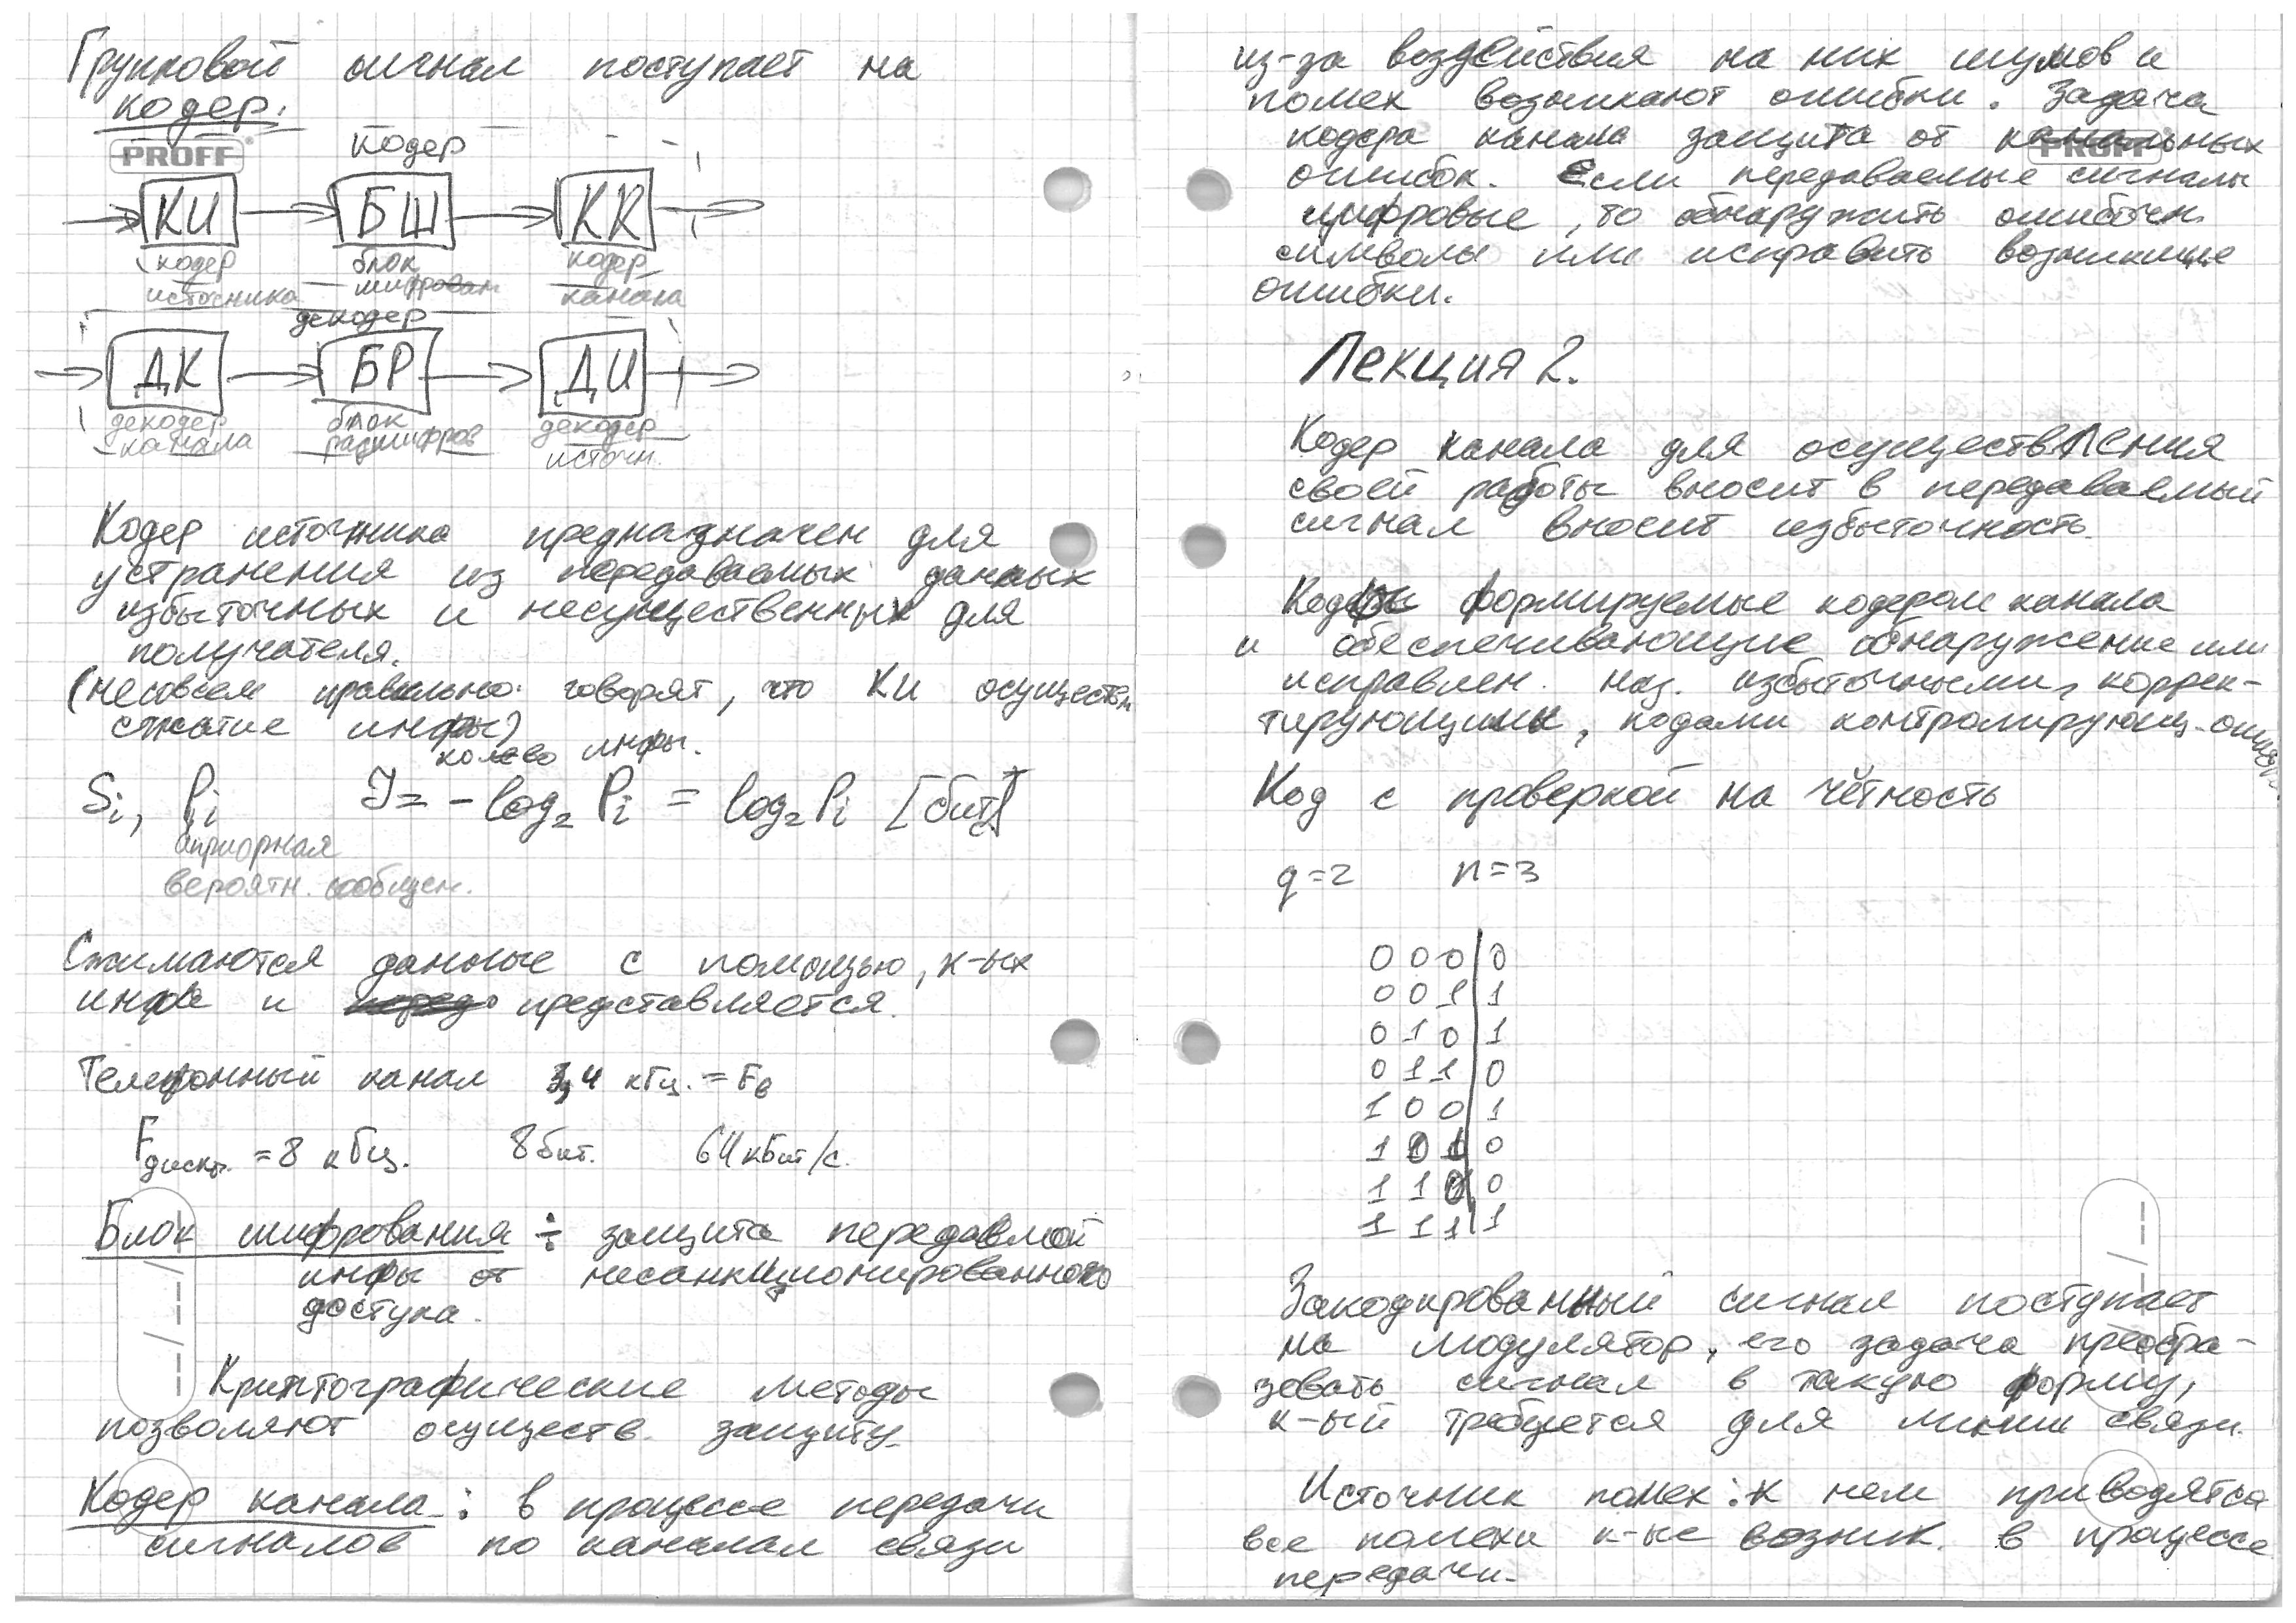 Групповой сигнал поступает на
кодер.
PROFF
кодер
КИ БШ КК
кодер блок кодер
источника шифрован канала
декодер
ДК БР ДИ
декодер блок декодер
канала расшифров источн.
Кодер источника предназначен для
устранения из передаваемых данных
избыточных и несущественных для
получателя.
(несовсем правильно говорят, что КИ осуществ
сжатие инфы)
кол-во инфы.
Si, Pi J = - log₂ Pi = log₂ Pi [бит]
априорная
вероятн. сообщен.
Сжимаются данные с помощью, к-ых
инфа и представляется.
Телефонный канал 3,4 кГц. = Fв
Fдискр. = 8 кГц. 8 бит. 64 кбит/с.
Блок шифрования ÷ защита передавмой
инфы от несанкционированного
доступа.
Криптографические методы
позволяют осуществ. защиту.
Кодер канала: в процессе передачи
сигналов по каналам связи
из-за воздействия на них шумов и
помех возникают ошибки. Задача
кодера канала защита от канальных
PROFF
ошибок. Если передаваемые сигналы
цифровые, то обнаружить ошибочн.
символы или исправить возникшие
ошибки.
Лекция 2.
Кодер канала для осуществления
своей работы вносит в передаваемый
сигнал вносит избыточность.
Коды формируемые кодером канала
и обеспечивающие обнаружение или
исправлен. наз. избыточными, коррек-
тирующими, кодами контролирующ.
Код с проверкой на чётность
q=2 n=3
0 0 0 | 0
0 0 1 | 1
0 1 0 | 1
0 1 1 | 0
1 0 0 | 1
1 0 1 | 0
1 1 0 | 0
1 1 1 | 1
Закодированный сигнал поступает
на модулятор, его задача преобра-
зовать сигнал в такую форму,
к-ый требуется для линии связи.
Источник помех: к нем приводятся
все помехи к-ые возник. в процессе
передачи.